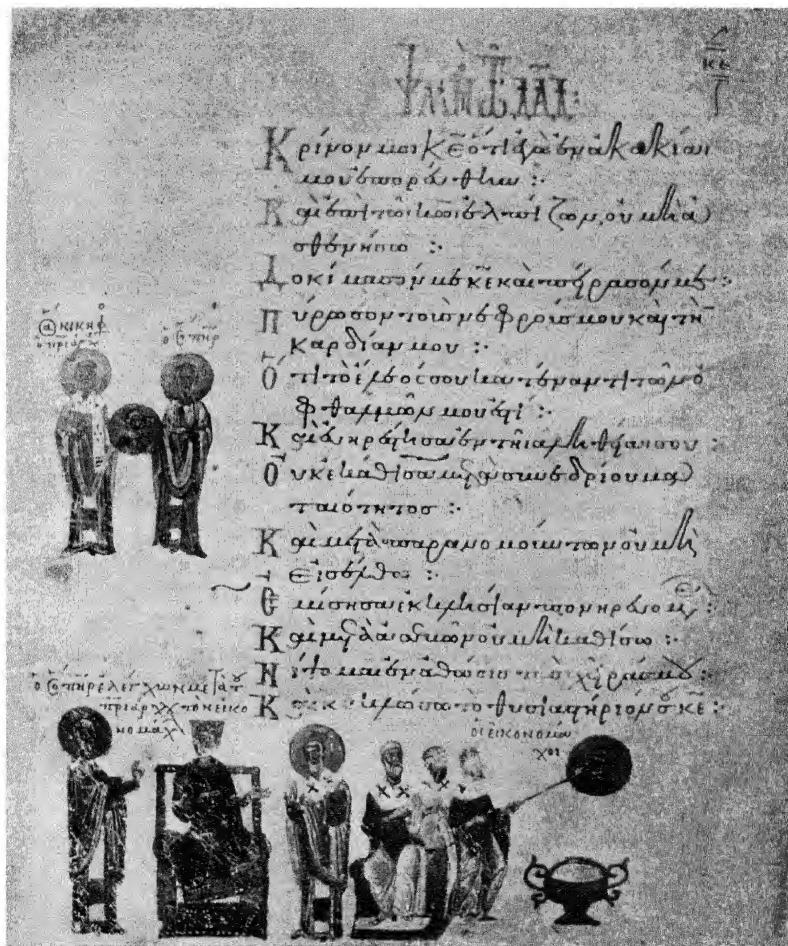 ΚΕ
Κρίνον μοι κ̅ε̅ ὅτι ἐγὼ ἐν ἀκακίαι
μου ἐπορεύθην :·
Καὶ ἐπὶ τῶ κ̅ω̅ ἐλπίζων, οὐ μὴ ἀ
σθενήσω :·
Δοκίμασόν με κ̅ε̅ καὶ πείρασόν με :·
Πύρωσον τοὺς νεφρούς μου καὶ τὴν
καρδίαν μου :·
Ὅτι τὸ ἔλεός σου κατέναντι τῶν ὀ
φθαλμῶν μου ἐστί :·
Καὶ εὐηρέστησα ἐν τῆι ἀληθείαι σου :·
Οὐκ ἐκάθισα μετὰ συνεδρίου μα
ταιότητος :·
Καὶ μετὰ παρανομούντων οὐ μὴ
εἰσέλθω :·
Ἐμίσησα ἐκκλησίαν πονηρευομέν :·
Καὶ μετὰ οὐ μὴ καθίσω :·
Νίψομαι ἐν ἀθώοις τὰς χεῖράς μου :·
Καὶ κυκλώσω τὸ θυσιαστήριόν σου κ̅ε̅ :·
ὁ ἅ ΝΙΚΗΦ
ὁ π̅ρ̅ιάρχ
ὁ ϹΠΗΡ
ὁ ϹΠΗΡ ΕΛΕΓΧΩΝ ΜΕΤΑ ΤΟΥ
π̅ρ̅ιάρχχ ΤΟΝ ΕΙΚΟ
ΝΟΜΑΧ
ΟΙ ΕΙΚΟΝΟΜΑ
ΧΟΙ